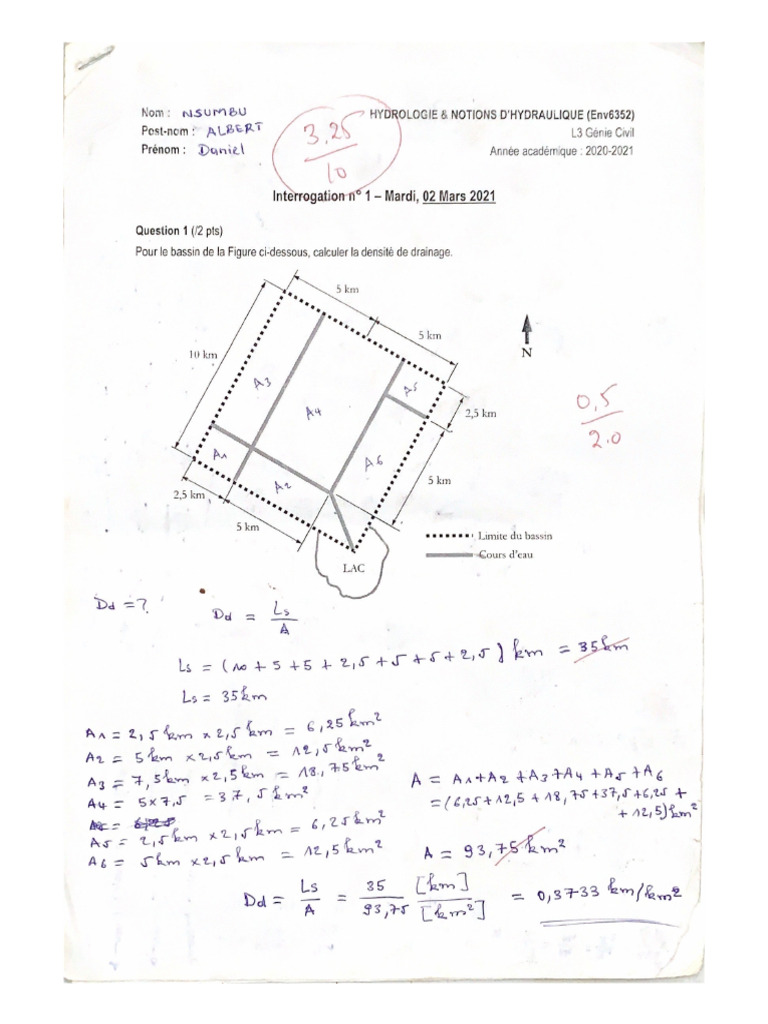 Nom : NSUMBU
HYDROLOGIE & NOTIONS D'HYDRAULIQUE (Env6352)
Post-nom : ALBERT
L3 Génie Civil
Prénom : Daniel
Année académique : 2020-2021
3,25
10
Interrogation n° 1 – Mardi, 02 Mars 2021
Question 1 (/2 pts)
Pour le bassin de la Figure ci-dessous, calculer la densité de drainage.
5 km
5 km
10 km
N
A3
A5
A4
2,5 km
0,5
2.0
A1
A6
A2
5 km
2,5 km
5 km
Limite du bassin
Cours d'eau
LAC
Dd = ?
Dd = Ls
A
Ls = (10 + 5 + 5 + 2,5 + 5 + 5 + 2,5) km = 35km
Ls = 35km
A1 = 2,5km x 2,5km = 6,25km²
A2 = 5km x 2,5km = 12,5km²
A3 = 7,5km x 2,5km = 18,75km²
A4 = 5x7,5 = 37,5km²
A5 = 2,5km x 2,5km = 6,25km²
A6 = 5km x 2,5km = 12,5km²
A = A1+A2+A3+A4+A5+A6
= (6,25+12,5+18,75+37,5+6,25+
+12,5)km²
A = 93,75km²
Dd = Ls = 35 [km] = 0,3733 km/km²
A 93,75 [km²]